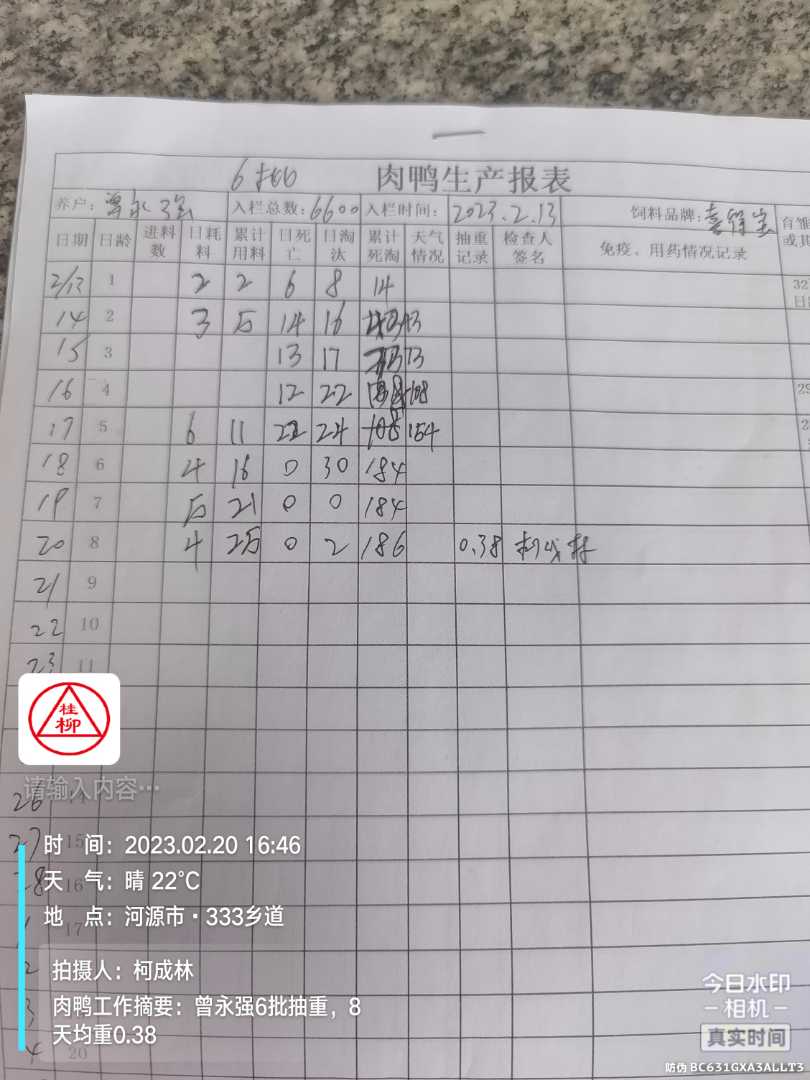 6批 肉鸭生产报表
养户: 曾永强 入栏总数: 6600 入栏时间: 2023.2.13 饲料品牌:
日期 日龄 进料数 日耗料 累计用料 日死亡 日淘汰 累计死淘 天气情况 抽重记录 检查人签名 免疫、用药情况记录
2/13 1 2 2 6 8 14
14 2 3 5 14 16 43
15 3 13 17 73
16 4 12 22 108
17 5 6 11 22 24 154
18 6 4 16 0 30 184
19 7 5 21 0 0 184
20 8 4 25 0 2 186 0.38 柯成林
21 9
22 10
23 11
桂柳
请输入内容…
26
27 15
28 16
17
2
3
4 20
时 间: 2023.02.20 16:46
天 气: 晴 22℃
地 点: 河源市·333乡道
拍摄人: 柯成林
肉鸭工作摘要: 曾永强6批抽重，8
天均重0.38
今日水印
相机
真实时间
防伪 BC631GXA3ALLT3